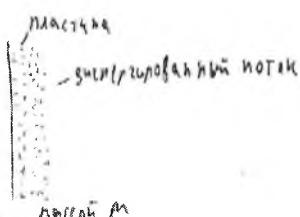 пластина
диспергированный поток
массой М